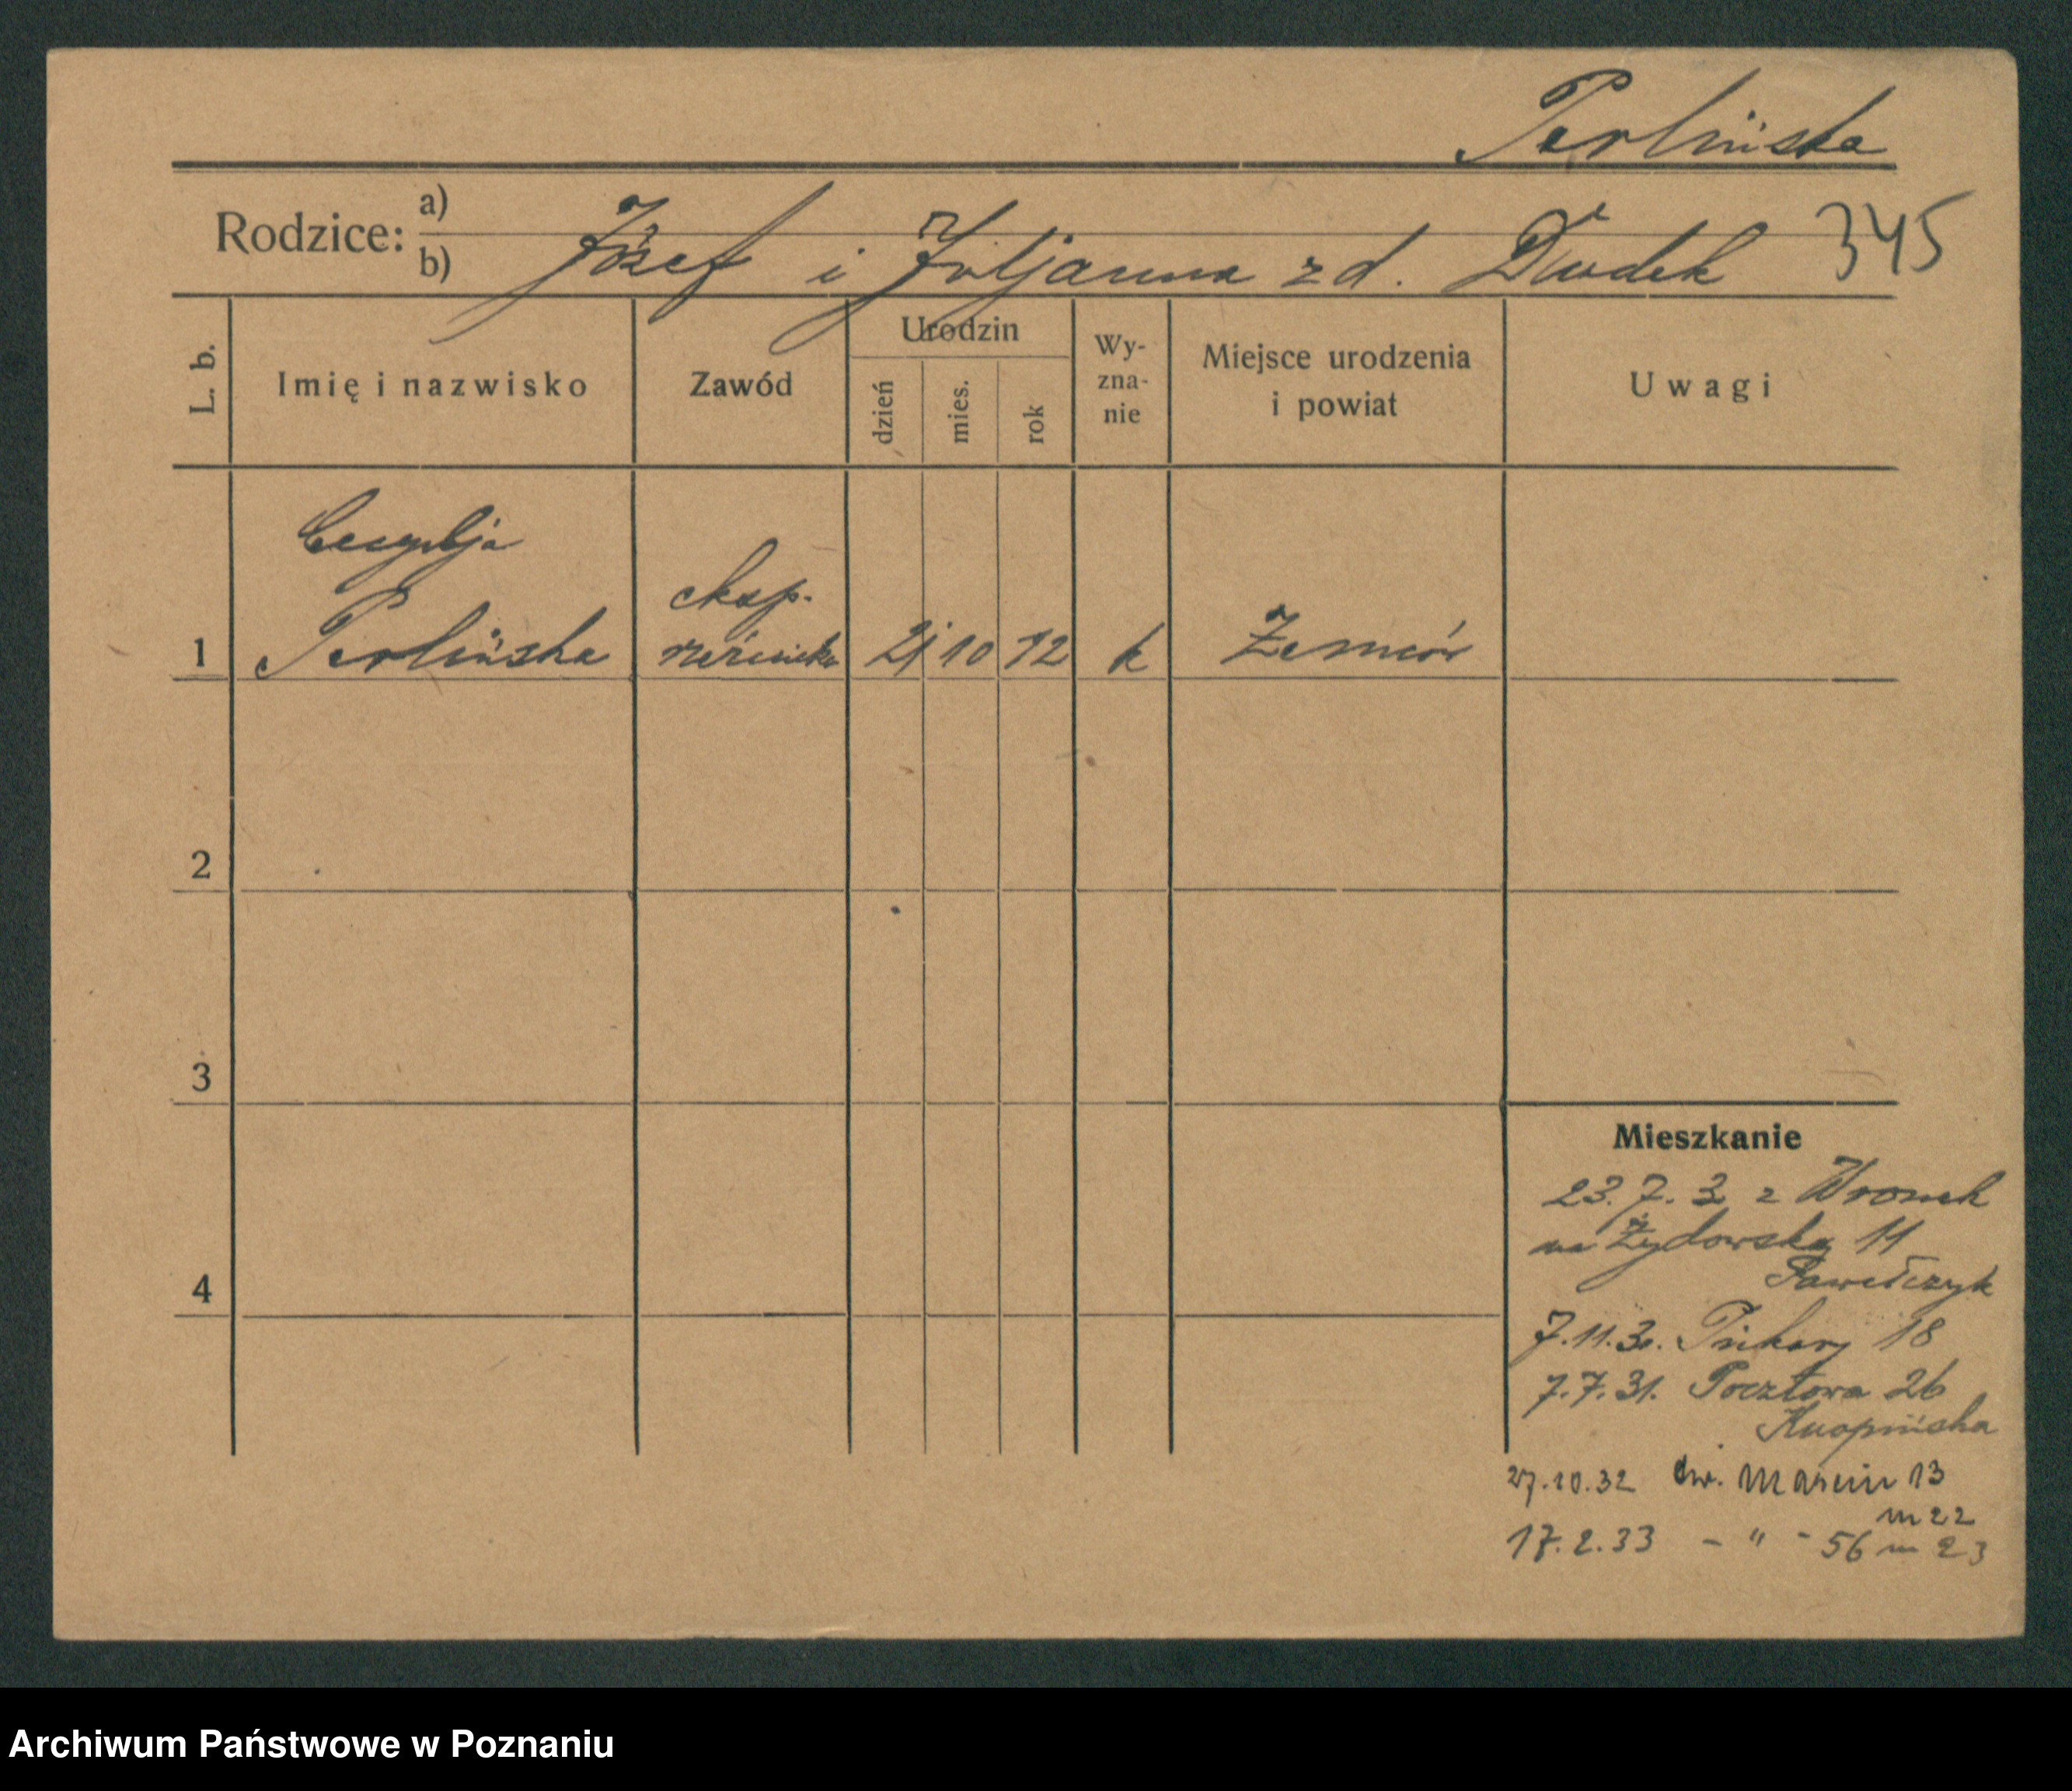 Perlińska
Rodzice: a)
b) Józef i Juljanna zd. Dudek 345
L. b. Imię i nazwisko Zawód Urodzin Wy-zna-nie Miejsce urodzenia i powiat Uwagi
dzień mies. rok
Cecylja
eksp.
1 Perlińska rzeźnicka 21 10 12 k
2
3
4
Mieszkanie
23.7.3 z Wronek
na Żydowską 11
Pawełczyk
7.11.30. Piekary 18
7.7.31. Pocztowa 26
27.10.32 św. Marcin 13
m 22
17.2.33 - " - 56 m 23
Archiwum Państwowe w Poznaniu